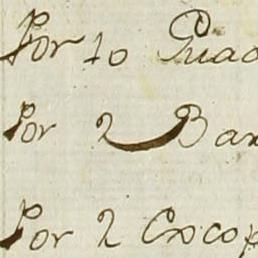 Por 10 Quad
Por 2 Bar
Por 2 Crocop